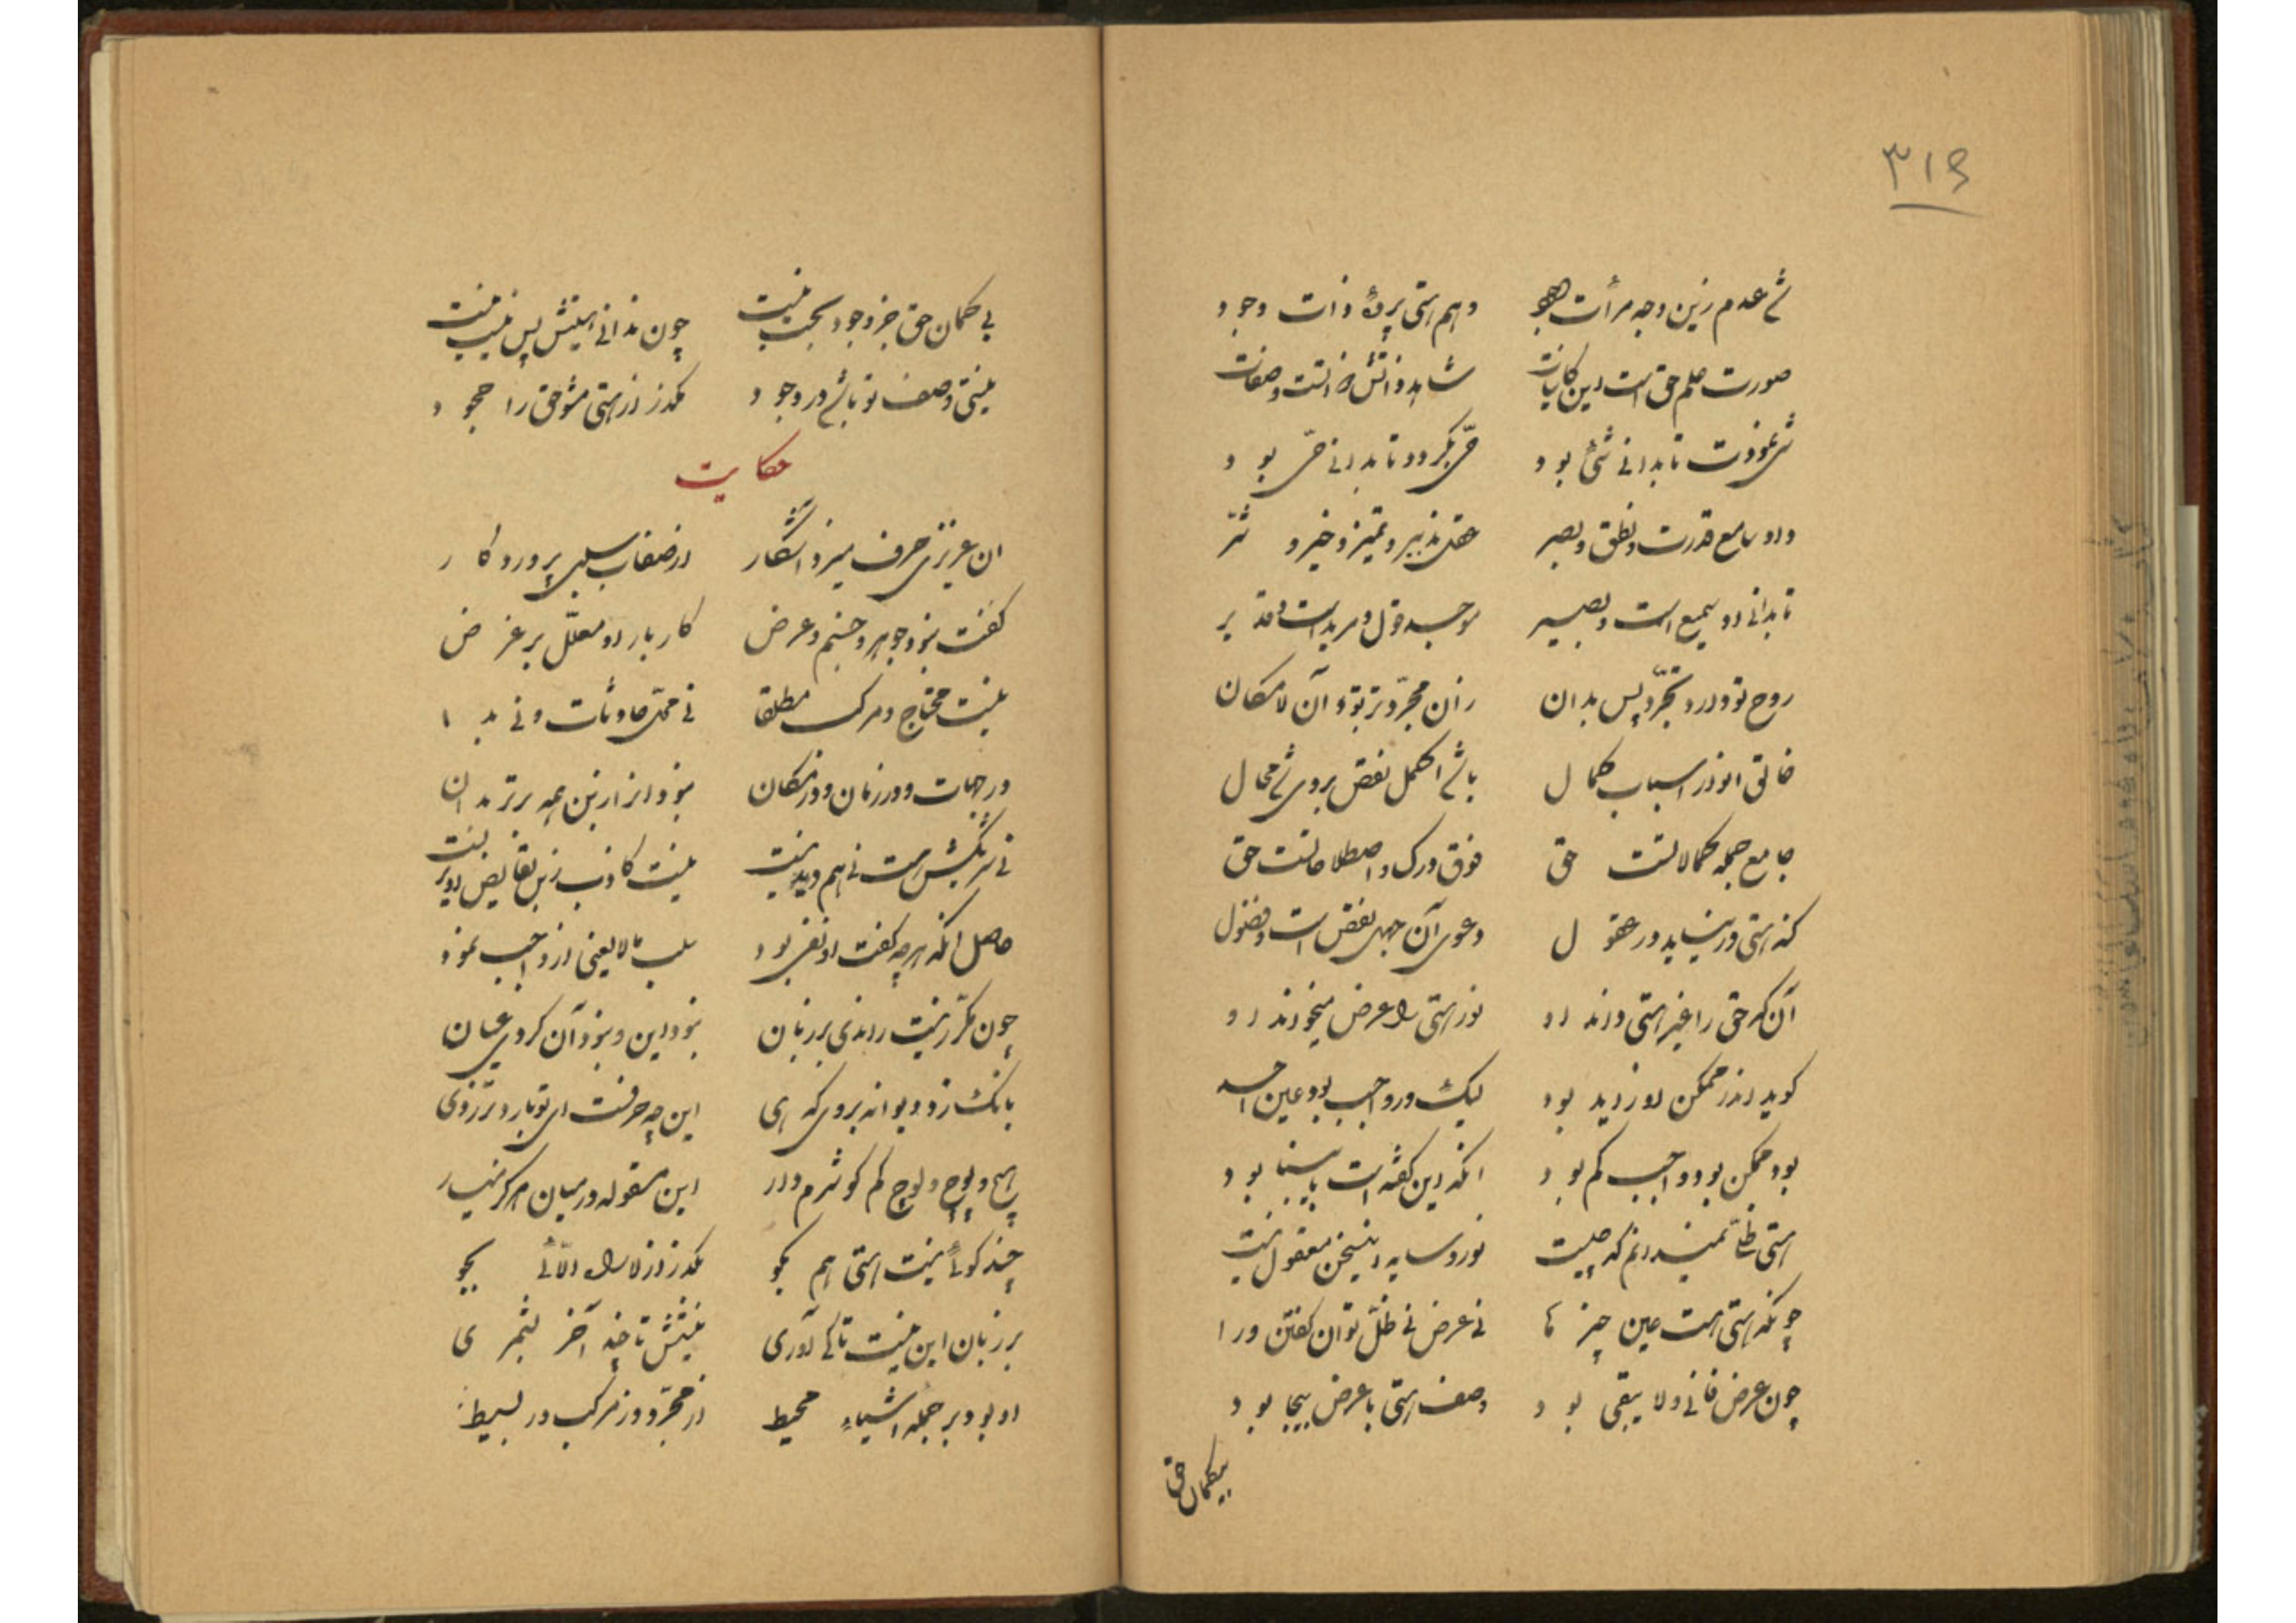 ۳۱۶
شی عدم زین وجه مرآت هو وهم هستی پرتو ذات وجود
صورت علم حق است این کاینات شاهد ذاتش ذاتست و صفات
شی نمودت تا بدانی شیء بود حی بکردد تا بدانی حی بود
داد سامع قدرت و نطق و بصر عقل و تدبیر و تمیز و خیر و شر
تا بدانی او سمیع است و بصیر موجد و قول و مرید است و قدیر
روح تو دارد تجرد پس بدان زان مجرد تر بود آن لامکان
خالق اندر اسباب کمال باشد اکمل نقص بروی شد محال
جامع جمله کمالاتست حق فوق درک و اصطلاحاتست حق
کنه هستی در نیاید در عقول دعوی آن جهل و نقص است و فضول
آن که حق را غیر هستی داند او نور هستی را عرض میخواند او
کوید اندر ممکن او زاید بود لیک در واجب بود عین احد
بود ممکن بود و واجب کم بود انکه این کفته است نابینا بود
هستی ظلّ نمیدانم که چیست نور و سایه این سخن معقول نیست
چونکه هستی هست عین چیزها نی عرض نی ظلّ توان کفتن ورا
چون عرض فانی و لا یبقی بود وصف هستی با عرض بیجا بود
بیکمان حق
بی کمان حق جز وجود بحت نیست چون ندانی نیستش پس نیست نیست
نیستی وصف تو باشد در وجود بکذر از هستی مشو حق را جحود
حکایت
ان عزیزی حرف میزد آشکار در صفات سلبی پروردکار
کفت نبود جوهر و جسم و عرض کار بار او معلّل بر غرض
نیست محتاج و مرکب مطلقا نی محل حادثات و نی بدا
در جهات و در زمان و در مکان نبود او از این همه برتر بدان
نی شریکش هست نی هم دیدنیست نیست کاذب زین نقایص او بریست
حاصل انکه هر چه کفت او نفی بود سلب مالایعنی از واجب نمود
چون مکرّر نیست راندی بر زبان نبود این و نبود آن کردی عیان
بانک زد دیوانه بروی که ای این چه حرفست ای تو بارد تر ز دی
هیچ و پوچ و لوچ کم کو شرم دار این مقوله در میان هرکز میار
چند کوئی نیست هستی هم بکو بکذر از لا راه الّائی بجو
بر زبان این نیست تا کی آوری نیستش تا چند آخر بشمری
او بود بر جمله اشیاء محیط از مجرّد وز مرکب در بسیط